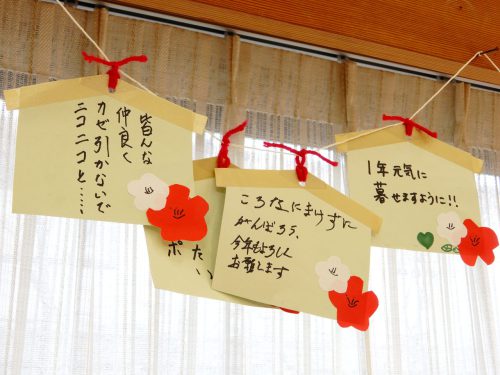 皆んな
仲良く
カゼ引かないで
ニコニコと……
ころなにまけずに
がんばろう、
今年もよろしく
お願します
1年元気に
暮せますように!!
たい
ポ